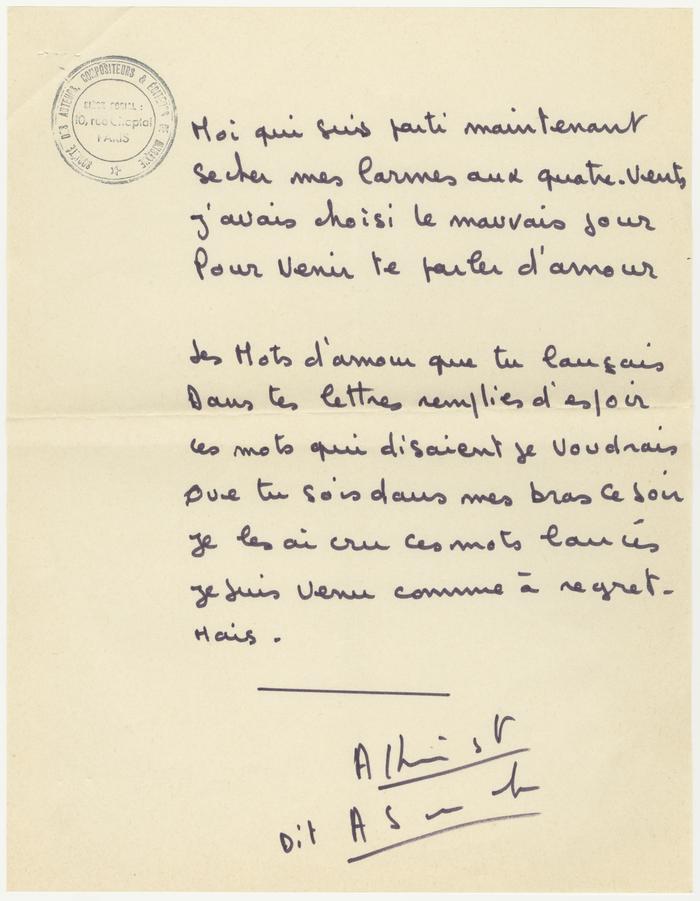 SOCIÉTÉ D'S AUTEURS, COMPOSITEURS & ÉDITEURS DE MUSIQUE
SIÈGE SOCIAL :
10, rue Chaptal
PARIS
Moi qui suis parti maintenant
Secher mes larmes aux quatre-vents
J'avais choisi le mauvais jour
Pour venir te parler d'amour
Les Mots d'amour que tu lançais
Dans tes lettres remplies d'espoir
Ces mots qui disaient je voudrais
Que tu sois dans mes bras ce soir
Je les ai cru ces mots lancés
Je suis venu comme à regret -
Mais .
Dit